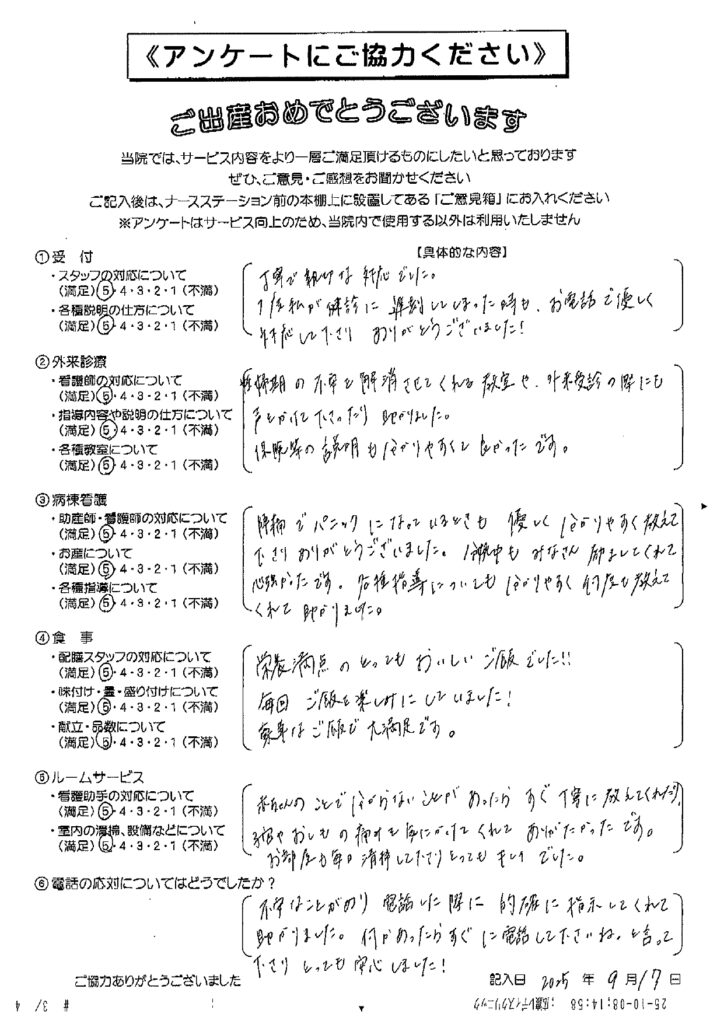 《アンケートにご協力ください》
ご出産おめでとうございます
当院では、サービス内容をより一層ご満足頂けるものにしたいと思っております
ぜひ、ご意見・ご感想をお聞かせください
ご記入後は、ナースステーション前の本棚上に設置してある「ご意見箱」にお入れください
※アンケートはサービス向上のため、当院内で使用する以外は利用いたしません
①受 付
【具体的な内容】
・スタッフの対応について
(満足)⑤・4・3・2・1(不満)
・各種説明の仕方について
(満足)⑤・4・3・2・1(不満)
丁寧で親切な対応でした。
1度私が健診に遅刻してしまった時も、お電話で優しく
対応して下さり ありがとうございました!
②外来診療
・看護師の対応について
(満足)⑤・4・3・2・1(不満)
・指導内容や説明の仕方について
(満足)⑤・4・3・2・1(不満)
・各種教室について
(満足)⑤・4・3・2・1(不満)
妊婦期の不安を解消させてくれる教室や、外来受診の際にも
声をかけて下さったり助かりました。
保険等の説明も分かりやすくて良かったです。
③病棟看護
・助産師・看護師の対応について
(満足)⑤・4・3・2・1(不満)
・お産について
(満足)⑤・4・3・2・1(不満)
・各種指導について
(満足)⑤・4・3・2・1(不満)
陣痛でパニックになっているときも 優しく分かりやすく教えて
下さりありがとうございました。分娩中もみなさん励ましてくれて
心強かったです。各種指導についても分かりやすく何度も教えて
くれて助かりました。
④食 事
・配膳スタッフの対応について
(満足)⑤・4・3・2・1(不満)
・味付け・量・盛り付けについて
(満足)⑤・4・3・2・1(不満)
・献立・品数について
(満足)⑤・4・3・2・1(不満)
栄養満点のとってもおいしいご飯でした!!
毎回 ご飯を楽しみにしていました!
はご飯で大満足です。
⑤ルームサービス
・看護助手の対応について
(満足)⑤・4・3・2・1(不満)
・室内の清掃、設備などについて
(満足)⑤・4・3・2・1(不満)
赤ちゃんのことで分からないことがあったらすぐ丁寧に教えてくれたり、
やおしもの痛みを気にかけてくれてありがたかったです。
お部屋も毎日清掃して下さりとってもキレイでした。
⑥電話の応対についてはどうでしたか?
不安なことがあり電話した際に的確に指示してくれて
助かりました。何かあったらすぐに電話して下さいね。と言って
下さりとっても安心しました!
ご協力ありがとうございました
記入日 2025 年 9 月 17 日
25-10-08;14:58 ;広瀬レディスクリニック
# 3/ 4